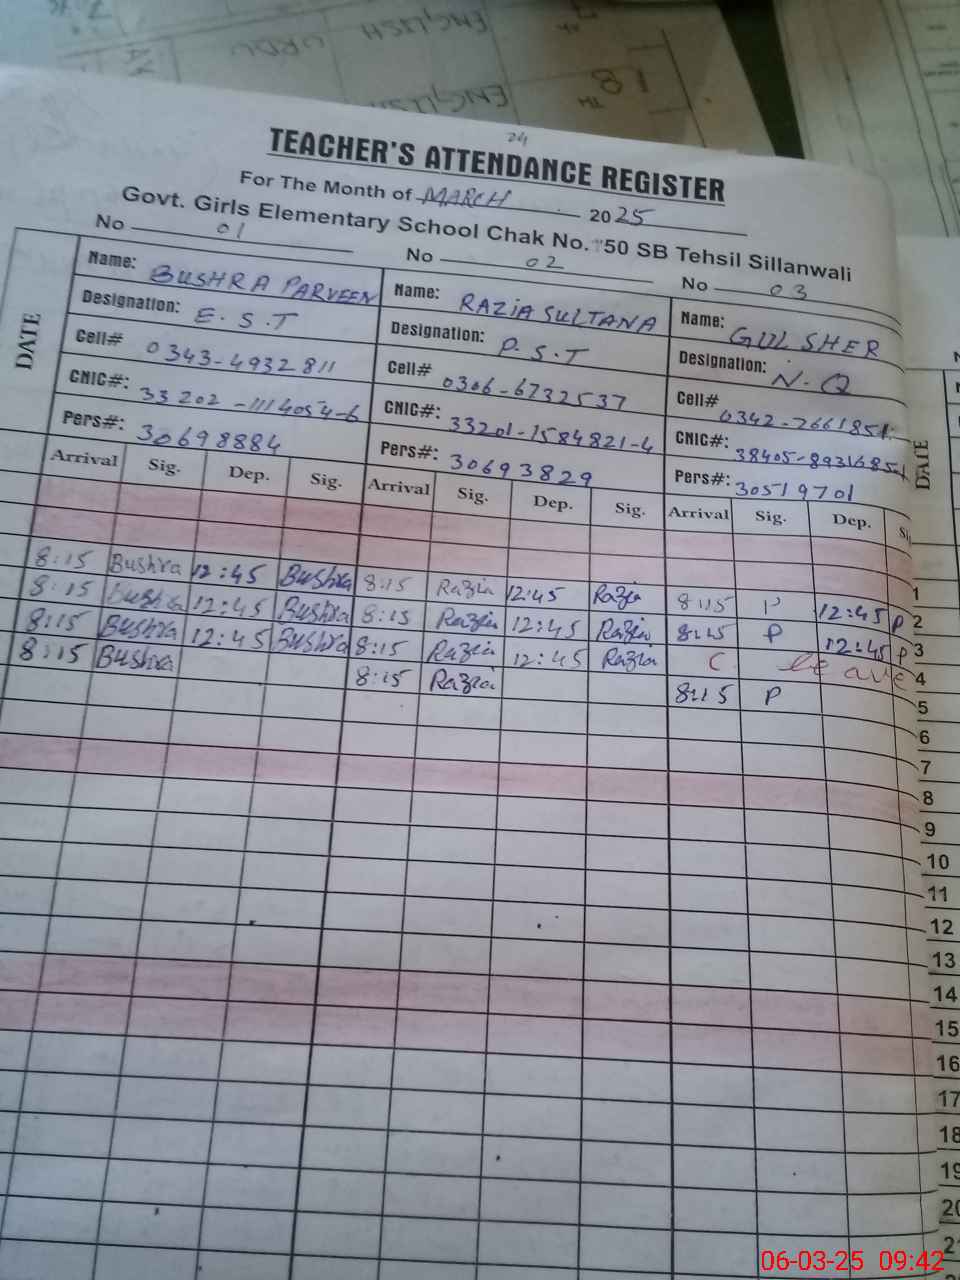 ENGLISH URDU
ENGLISH
18 TH
24
TEACHER'S ATTENDANCE REGISTER
For The Month of MARCH 2025
Govt. Girls Elementary School Chak No. 50 SB Tehsil Sillanwali
No 01 No 02 No 03
DATE
Name: BUSHRA PARVEEN Name: RAZIA SULTANA Name: GUL SHER
Designation: E.S.T Designation: P.S.T Designation: N-Q
Cell# 0343-4932811 Cell# 0306-6732537 Cell# 0342-7661851
CNIC#: 33202-1114054-6 CNIC#: 33201-1584821-4 CNIC#:
Pers#: 30698884 Pers#: 30693829 Pers#: 30519701
DATE
Arrival Sig. Dep. Sig. Arrival Sig. Dep. Sig. Arrival Sig. Dep.
1
2
8:15 Bushra 12:45 Bushra 8:15 Razia 12:45 Razia 8:15 P 12:45 P
3
8:15 Bushra 12:45 Bushra 8:15 Razia 12:45 Razia 8:15 P 12:45 P
4
8:15 Bushra 12:45 Bushra 8:15 Razia 12:45 Razia C leave
5
8:15 Bushra 8:15 Razia 8:15 P
6
7
8
9
10
11
12
13
14
15
16
17
18
19
20
21
06-03-25 09:42